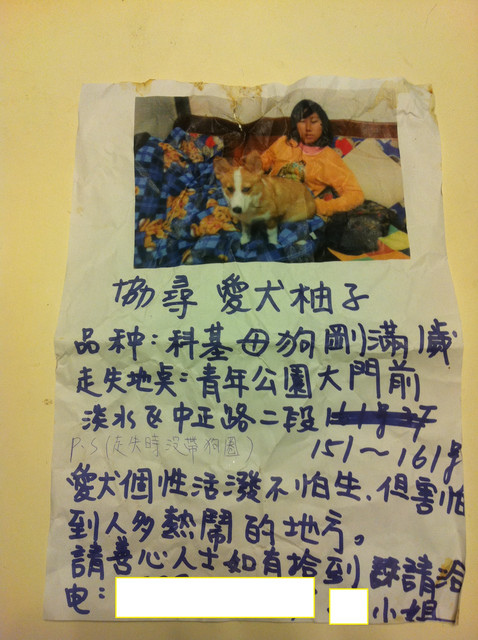 協尋 愛犬柚子
品种：科基母狗剛滿1歲
走失地点：青年公園大門前
淡水区中正路二段
P.S(走失時沒帶狗圈)
151～161号
愛犬個性活潑不怕生，但害怕
到人多熱鬧的地方。
請善心人士如有拾到 請洽
电：
小姐